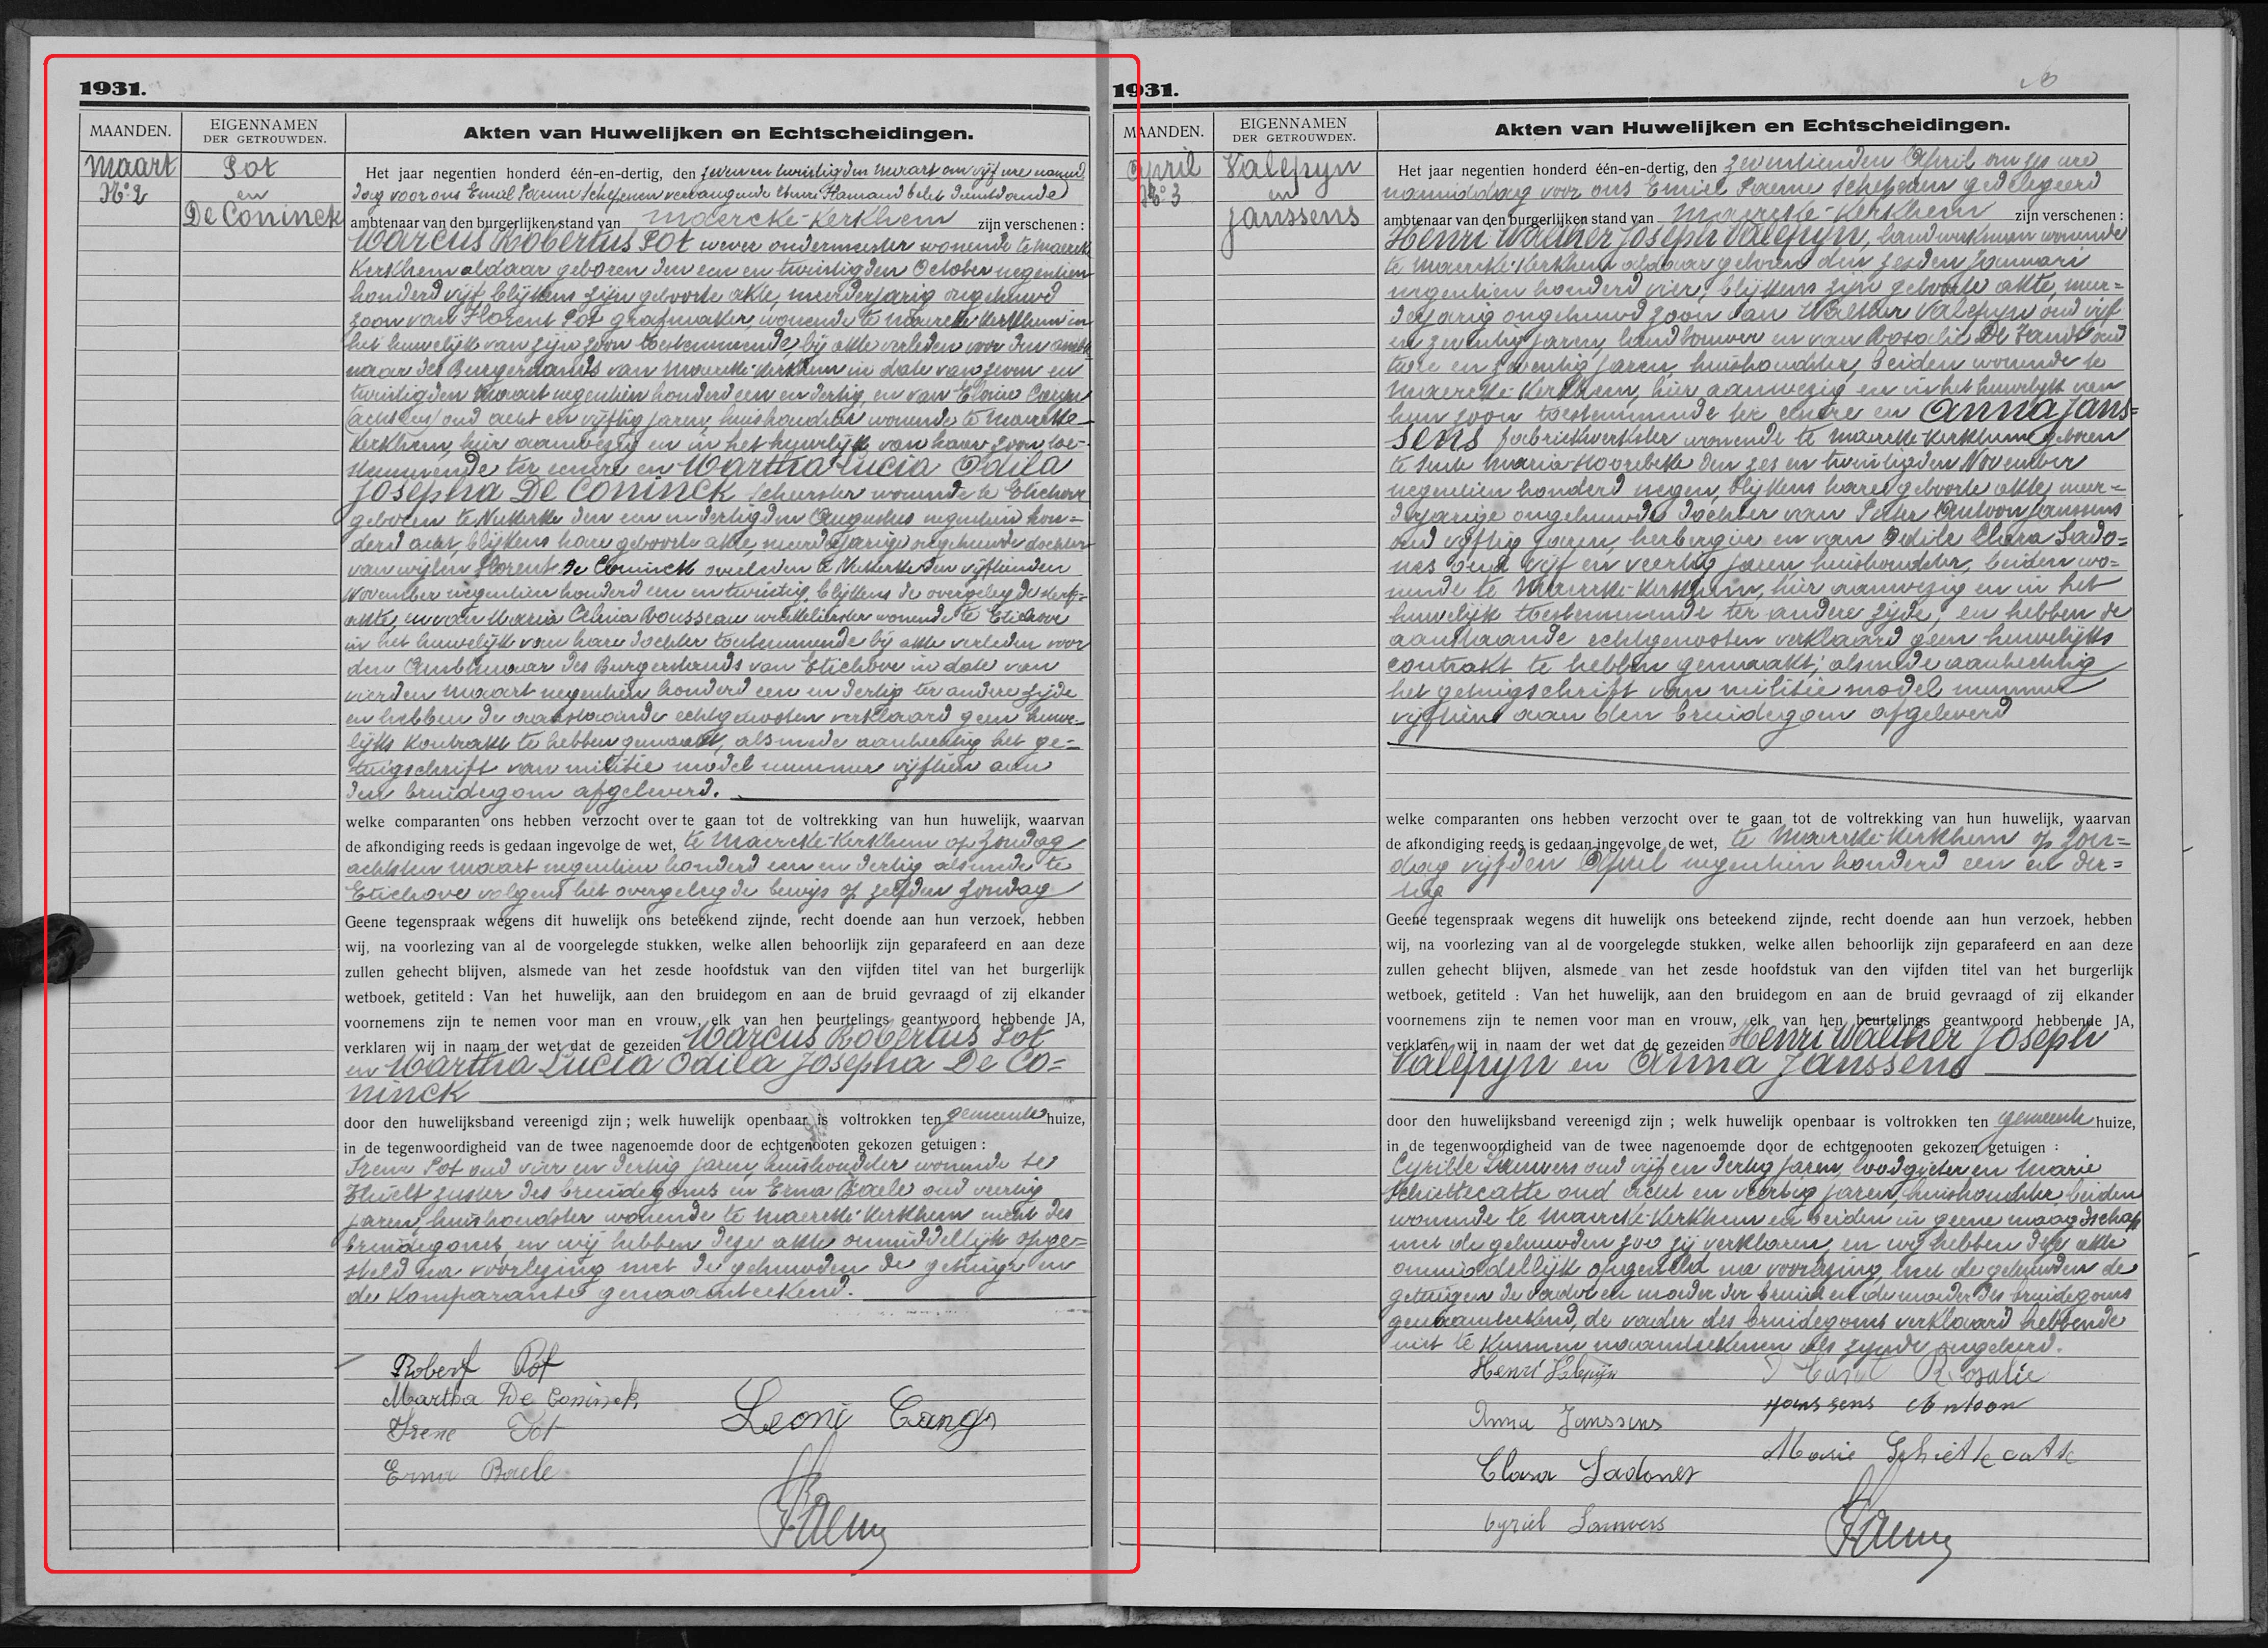 1931.
MAANDEN.
EIGENNAMEN
DER GETROUWDEN.
Akten van Huwelijken en Echtscheidingen.
Maart
No 2
Pot
en
De Coninck
Het jaar negentien honderd één-en-dertig, den zeven en twintigden Maart om vijf ure namid
dag voor ons Emiel Paeme Schepenen vervangende Henri belet dienstdoende
ambtenaar van den burgerlijken stand van Maercke-Kerkhem zijn verschenen :
Marcus Robertus Pot wever ondermeester wonende te Maercke
Kerkhem aldaar geboren den een en twintigden October negentien
honderd vijf blijkens zijn geboorte akte, meerderjarig ongehuwd
zoon van Florent Pot grafmaker, wonende te Maercke Kerkhem in
het huwelijk van zijn zoon toestemmende, bij akte verleden voor den ambte
naar des Burgerstands van Maercke-Kerkhem in date van zeven en
twintigden Maart negentien honderd een en dertig, en van
oud acht en vijftig jaren, huishoudster wonende te Maercke
Kerkhem, hier aanwezig en in het huwelijk van haar zoon toe-
stemmende ter eenre en Martha Lucia Odila
Josepha De Coninck scheerster wonende te Etichove
geboren te Nukerke den een en dertigden Augustus negentien hon=
derd acht, blijkens hare geboorte akte, meerderjarige ongehuwde dochter
van wijlen Florent De Coninck overleden te Nukerke den vijftienden
November negentien honderd een en twintig, blijkens de overgelegde sterf=
akte, en van Maria Celina Rousseau winkelierster wonende te Etichove
in het huwelijk van hare dochter toestemmende bij akte verleden voor
den Ambtenaar des Burgerstands van Etichove in date van
vierden Maart negentien honderd een en dertig ter andere zijde
en hebben de aanstaande echtgenooten verklaard geen huwe-
lijks kontrakt te hebben gemaakt, alsmede aanhechtig het ge=
tuigschrift van militie model nummer vijftien aan
den bruidegom afgeleverd.
welke comparanten ons hebben verzocht over te gaan tot de voltrekking van hun huwelijk, waarvan
de afkondiging reeds is gedaan ingevolge de wet, te Maercke-Kerkhem op Zondag
achtsten Maart negentien honderd een en dertig alsmede te
Etichove volgens het overgelegde bewijs op zelfden Zondag
Geene tegenspraak wegens dit huwelijk ons beteekend zijnde, recht doende aan hun verzoek, hebben
wij, na voorlezing van al de voorgelegde stukken, welke allen behoorlijk zijn geparafeerd en aan deze
zullen gehecht blijven, alsmede van het zesde hoofdstuk van den vijfden titel van het burgerlijk
wetboek, getiteld : Van het huwelijk, aan den bruidegom en aan de bruid gevraagd of zij elkander
voornemens zijn te nemen voor man en vrouw, elk van hen beurtelings geantwoord hebbende JA,
verklaren wij in naam der wet dat de gezeiden Marcus Robertus Pot
en Martha Lucia Odila Josepha De Co=
ninck
door den huwelijksband vereenigd zijn ; welk huwelijk openbaar is voltrokken ten gemeente huize,
in de tegenwoordigheid van de twee nagenoemde door de echtgenooten gekozen getuigen :
Irena Pot oud vier en dertig jaren, huishoudster wonende te
Hulst zuster des bruidegoms en Erna Baele oud veertig
jaren, huishoudster wonende te Maercke-Kerkhem nicht des
bruidegoms, en wij hebben deze akte onmiddellijk opge=
steld na voorlezing met de gehuwden de getuigen en
de komparante genaamteekend.
Robert Pot
Martha De Coninck
Irene Pot
Erna Baele
Leonie
Paeme
1931.
MAANDEN.
EIGENNAMEN
DER GETROUWDEN.
Akten van Huwelijken en Echtscheidingen.
April
No 3
Valepyn
en
Janssens
Het jaar negentien honderd één-en-dertig, den zeventienden April om zes ure
namiddag voor ons Emiel Paeme schepenen gedelegeerd
ambtenaar van den burgerlijken stand van Maercke-Kerkhem zijn verschenen :
Henri Walther Joseph Valepyn, landwerkman wonende
te Maercke-Kerkhem aldaar geboren den zesden Januari
negentien honderd vier, blijkens zijn geboorte akte, meer=
derjarig ongehuwd zoon van Walther Valepyn oud vijf
en zeventig jaren, landbouwer en van Rosalie De Handt oud
twee en zeventig jaren, huishoudster, beiden wonende te
Maercke-Kerkhem, hier aanwezig en in het huwelijk van
hun zoon toestemmende ter eenre en Anna Jans=
sens fabriekwerkster wonende te Maercke-Kerkhem geboren
te Sinte Maria-Hoorebeke den zes en twintigsten November
negentien honderd negen, blijkens hare geboorte akte, meer=
derjarige ongehuwde dochter van Peter Antoon Janssens
oud vijftig jaren, herbergier en van Odile Clara Lado=
nes oud vijf en veertig jaren huishoudster, beiden wo=
nende te Maercke-Kerkhem, hier aanwezig en in het
huwelijk toestemmende ter andere zijde, en hebben de
aanstaande echtgenooten verklaard geen huwelijks
contrakt te hebben gemaakt, alsmede aanhechtig
het getuigschrift van militie model nummer
vijftien aan den bruidegom afgeleverd
welke comparanten ons hebben verzocht over te gaan tot de voltrekking van hun huwelijk, waarvan
de afkondiging reeds is gedaan ingevolge de wet, te Maercke-Kerkhem op Zon=
dag vijfden April negentien honderd een en der=
tig
Geene tegenspraak wegens dit huwelijk ons beteekend zijnde, recht doende aan hun verzoek, hebben
wij, na voorlezing van al de voorgelegde stukken, welke allen behoorlijk zijn geparafeerd en aan deze
zullen gehecht blijven, alsmede van het zesde hoofdstuk van den vijfden titel van het burgerlijk
wetboek, getiteld : Van het huwelijk, aan den bruidegom en aan de bruid gevraagd of zij elkander
voornemens zijn te nemen voor man en vrouw, elk van hen beurtelings geantwoord hebbende JA,
verklaren wij in naam der wet dat de gezeiden Henri Walther Joseph
Valepyn en Anna Janssens
door den huwelijksband vereenigd zijn ; welk huwelijk openbaar is voltrokken ten gemeente huize,
in de tegenwoordigheid van de twee nagenoemde door de echtgenooten gekozen getuigen :
Cyrille Lauwers oud vijf en dertig jaren, loodgieter en Marie
Schiettecatte oud acht en veertig jaren, huishoudster beiden
wonende te Maercke-Kerkhem en beiden in geene maagdschap
met de gehuwden zoo zij verklaren, en wij hebben deze akte
onmiddellijk opgesteld na voorlezing met de gehuwden de
getuigen de vader en moeder der bruid en de moeder des bruidegoms
genaamteekend, de vader des bruidegoms verklaard hebbende
niet te kunnen naamteekenen als zijnde ongeleerd.
Henri Valepijn
Rosalie
Anna Janssens
Janssens Antoon
Clara Ladones
Marie Schiettecatte
Cyriel Lauwers
Paeme